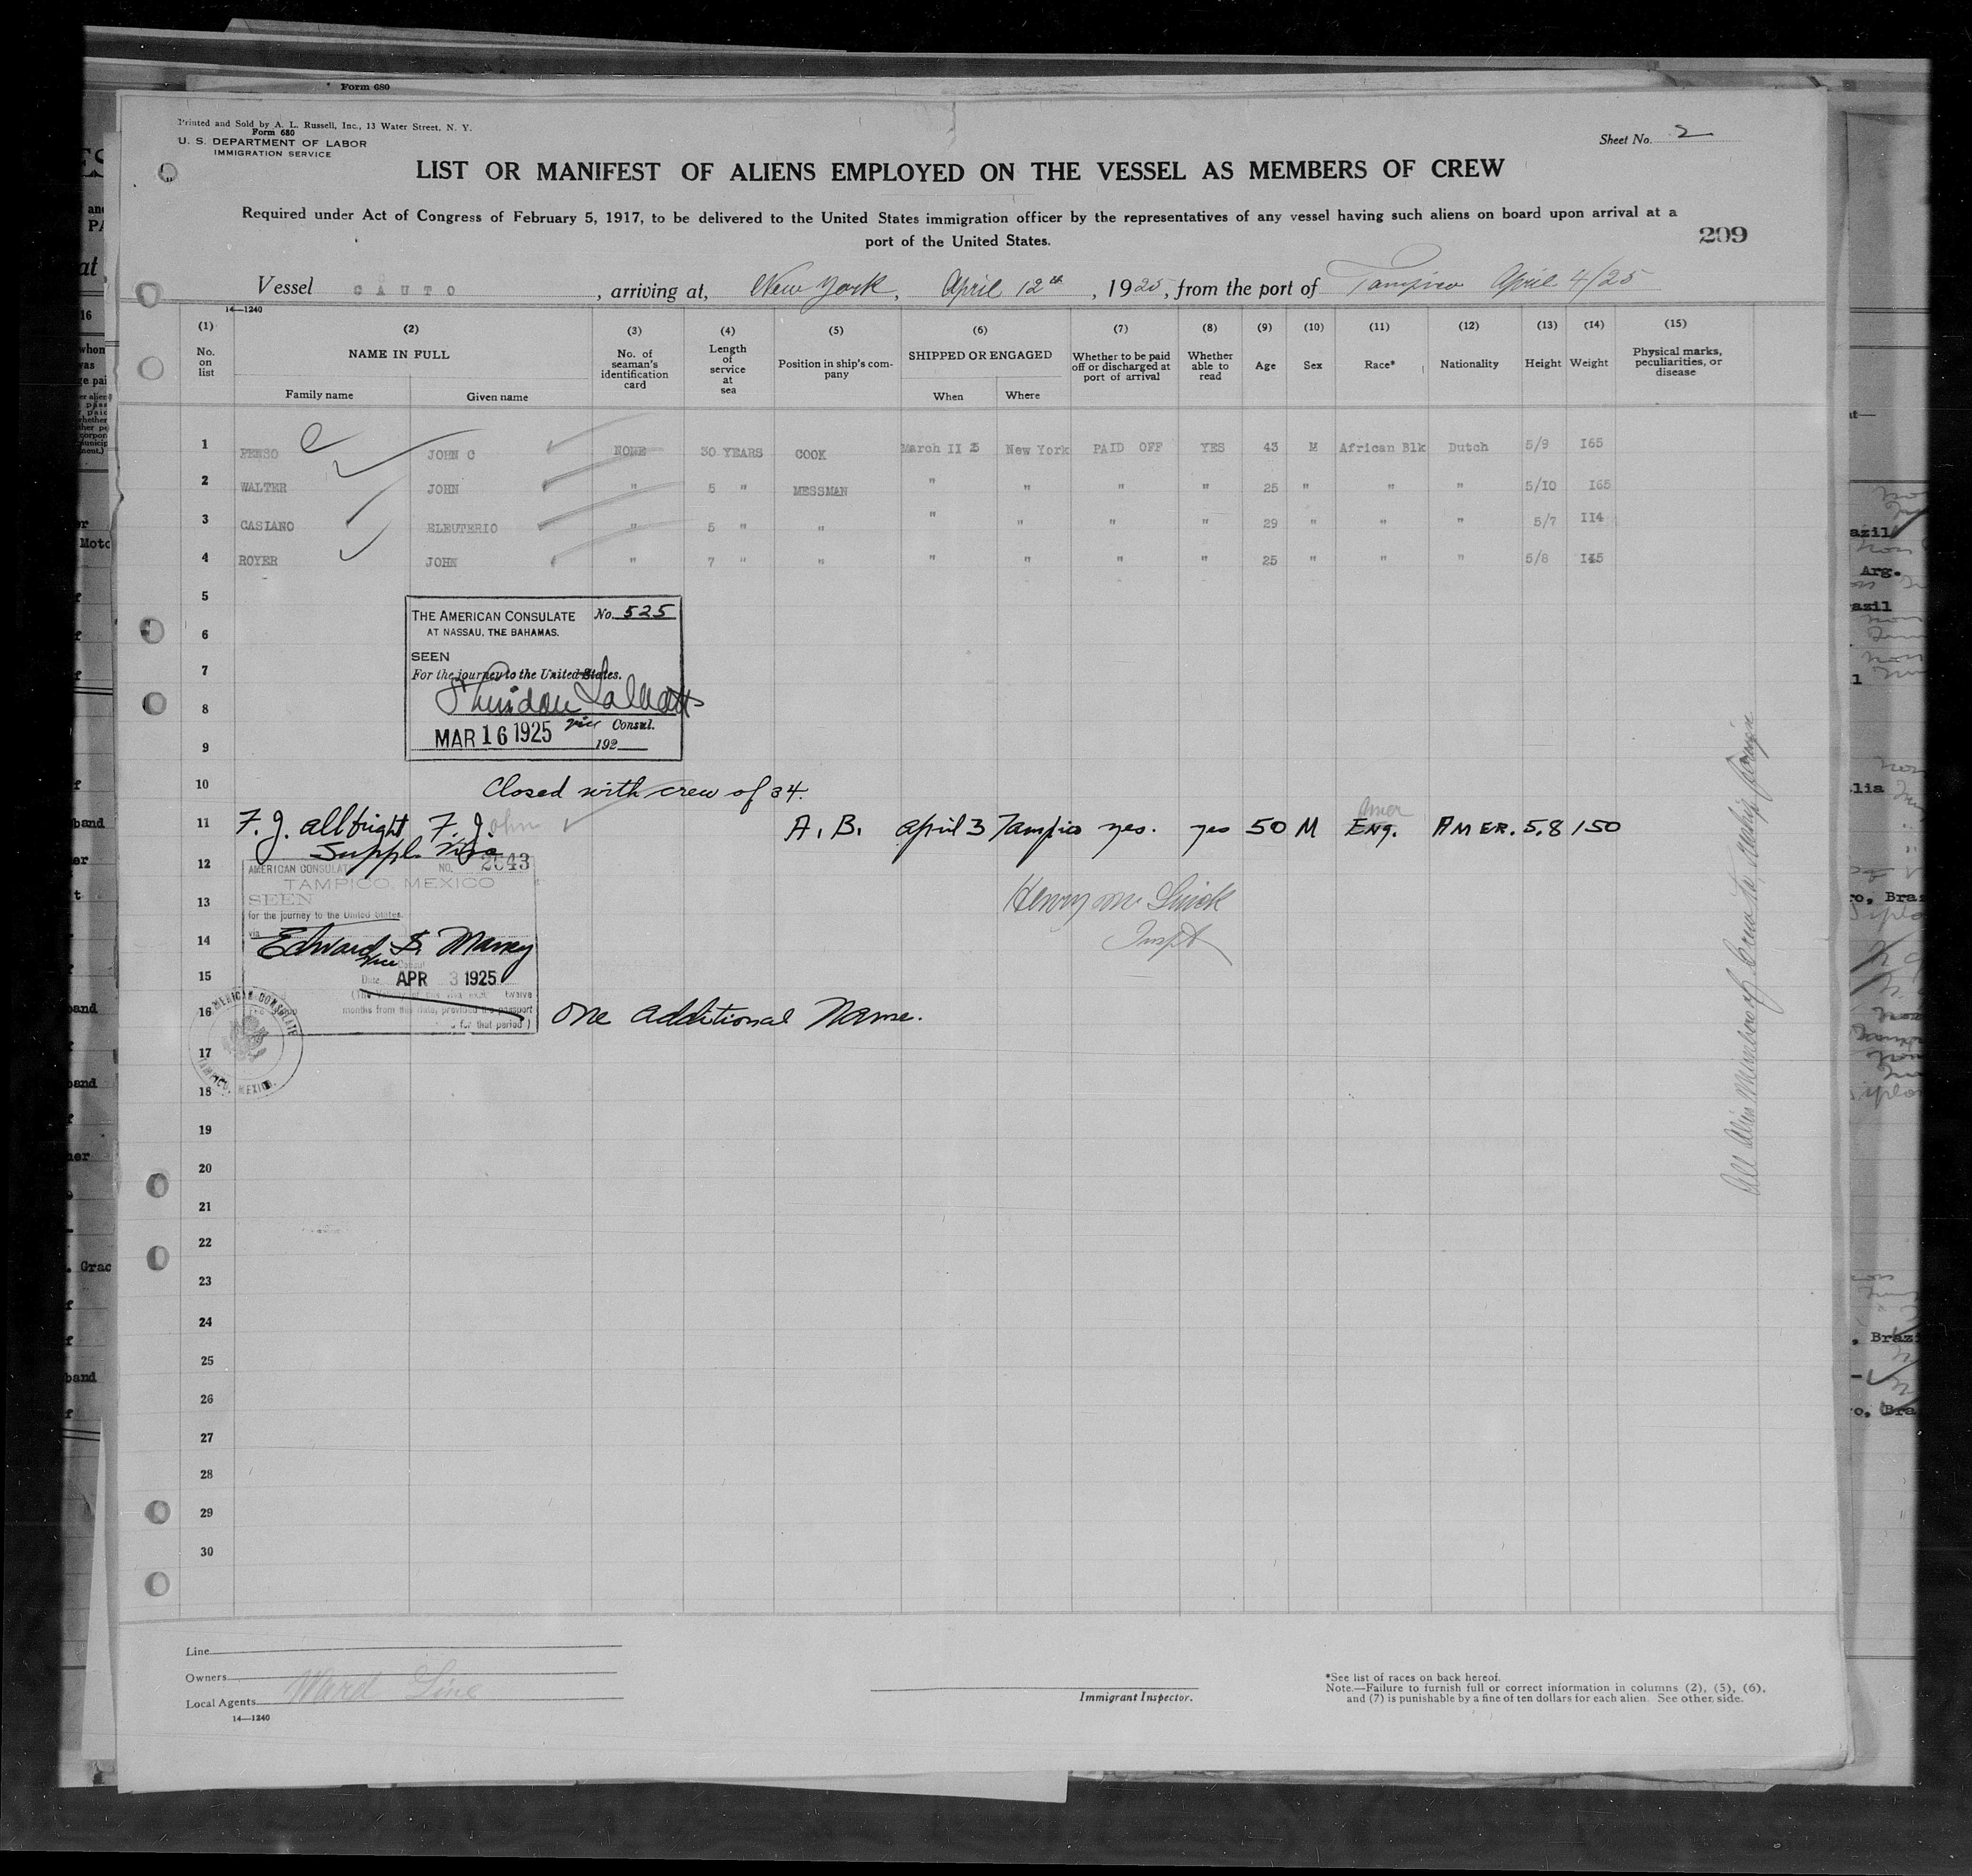 Form 680
Printed and Sold by A. L. Russell, Inc., 13 Water Street, N. Y.
Form 680
U. S. DEPARTMENT OF LABOR
IMMIGRATION SERVICE
Sheet No. 2
LIST OR MANIFEST OF ALIENS EMPLOYED ON THE VESSEL AS MEMBERS OF CREW
Required under Act of Congress of February 5, 1917, to be delivered to the United States immigration officer by the representatives of any vessel having such aliens on board upon arrival at a
port of the United States.
209
Vessel CAUTO, arriving at, New York, April 12th, 1925, from the port of Tampico April 4/25
14—1240
(1) No. on list
(2) NAME IN FULL Family name Given name
(3) No. of seaman's identification card
(4) Length of service at sea
(5) Position in ship's company
(6) SHIPPED OR ENGAGED When Where
(7) Whether to be paid off or discharged at port of arrival
(8) Whether able to read
(9) Age
(10) Sex
(11) Race*
(12) Nationality
(13) Height
(14) Weight
(15) Physical marks, peculiarities, or disease
1 PENSO JOHN C NONE 30 YEARS COOK March II 5 New York PAID OFF YES 43 M African Blk Dutch 5/9 I65
2 WALTER JOHN " 5 " MESSMAN " " " " 25 " " " 5/10 I65
3 CASIANO ELEUTERIO " 5 " " " " " " 29 " " " 5/7 II4
4 ROYER JOHN " 7 " " " " " " 25 " " " 5/8 I45
5
6
7
8
9
THE AMERICAN CONSULATE No. 525
AT NASSAU, THE BAHAMAS.
SEEN
For the journey to the United States.
vice Consul.
MAR 16 1925 192
10 Closed with crew of 34.
11 F. J. Allbright F. John A. B. April 3 Tampico yes. yes 50 M Amer Eng. AMER. 5.8 150
Suppl. Visa
12
AMERICAN CONSULATE NO. 2543
TAMPICO, MEXICO
13
SEEN
for the journey to the United States.
via
14
Edward S. Maney
vice Consul
15
Date APR 3 1925
twelve
months from this date, provided the passport
for that period)
AMERICAN CONSULATE
TAMPICO, MEXICO.
Inspt
16 One additional Name.
17
18
19
20
21
22
23
24
25
26
27
28
29
30
All Alien Members of Crew to
Line
Owners
Local Agents Ward Line
14—1240
Immigrant Inspector.
*See list of races on back hereof.
Note.—Failure to furnish full or correct information in columns (2), (5), (6),
and (7) is punishable by a fine of ten dollars for each alien. See other side.